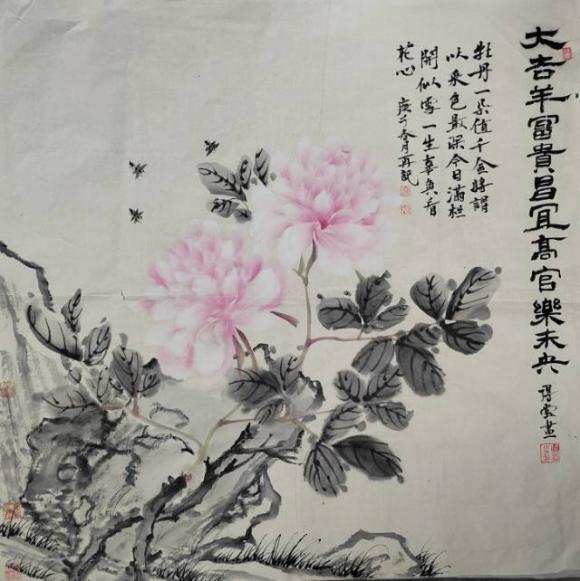 大吉羊富貴昌宜高官樂未央
雲畫
牡丹一朵值千金將謂
从来色最深今日滿栏
開似雪一生辜負看
花心 庚子春月再記